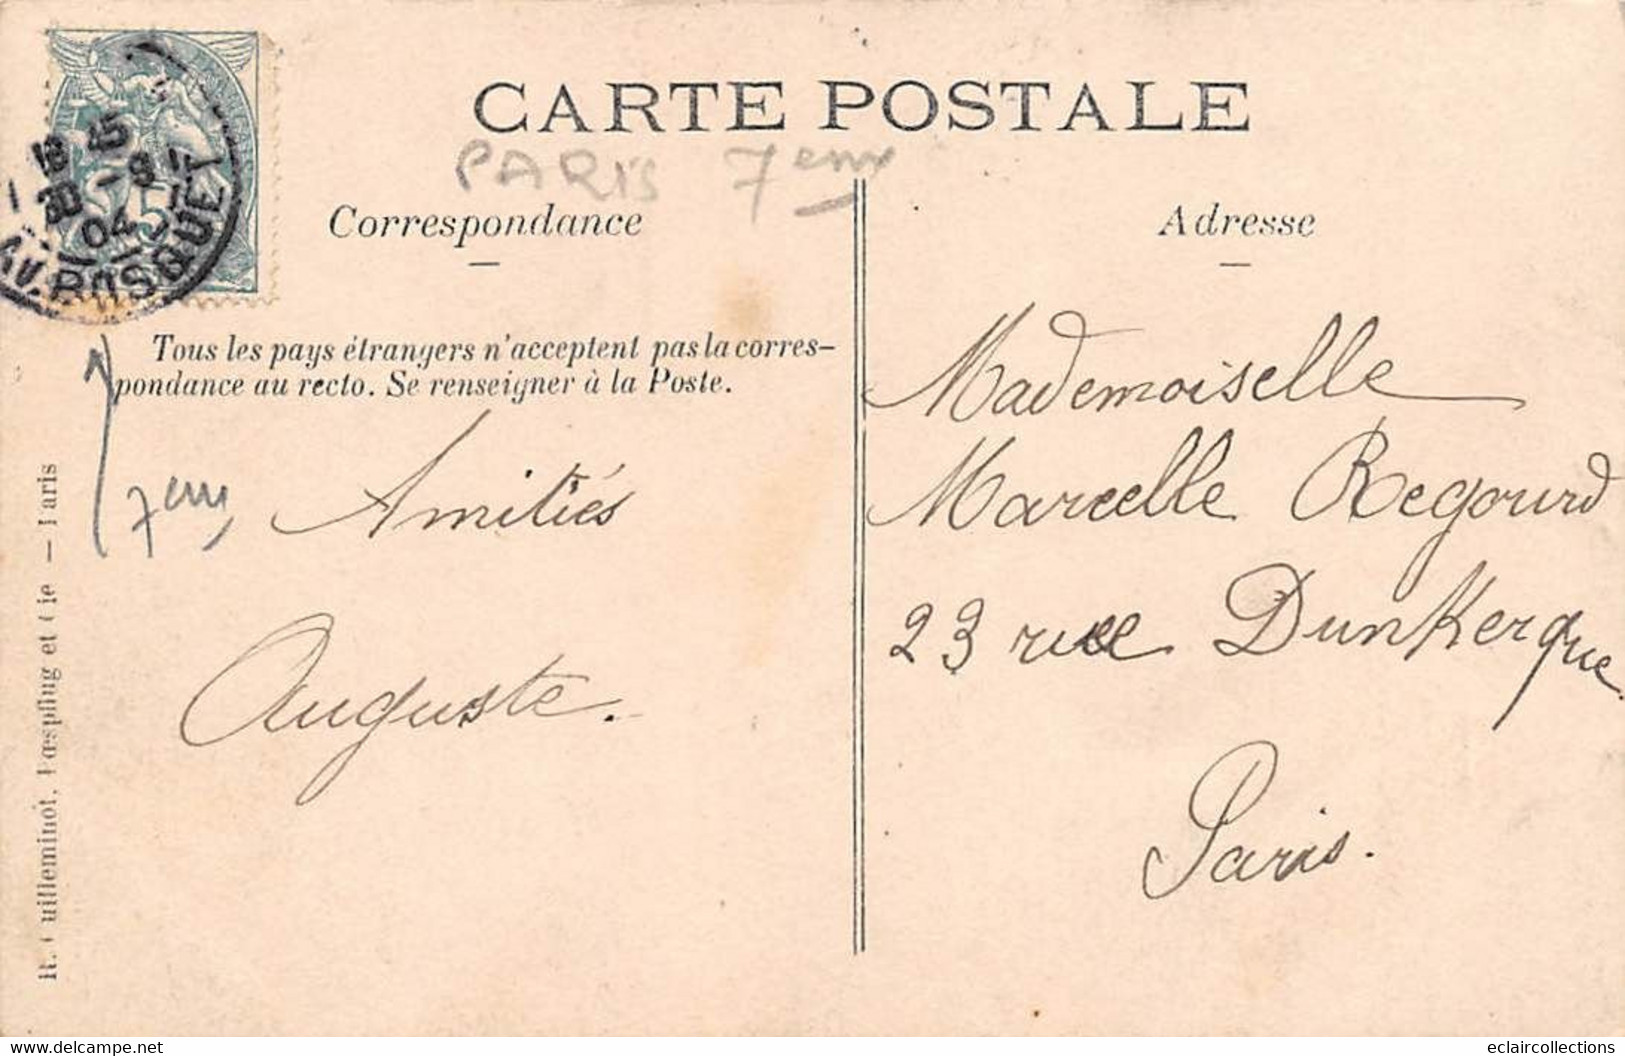 CARTE POSTALE
PARIS 7eme
Correspondance
Adresse
18 45
30 -9
04
AV. BOSQUET
5
Tous les pays étrangers n'acceptent pas la corres-
pondance au recto. Se renseigner à la Poste.
7eme
Amitiés
Auguste.
Mademoiselle
Marcelle Regourd
23 rue Dunkerque
Paris.
R. Guilleminot, Bœspflug et Cie — Paris
www.delcampe.net
eclaircollections